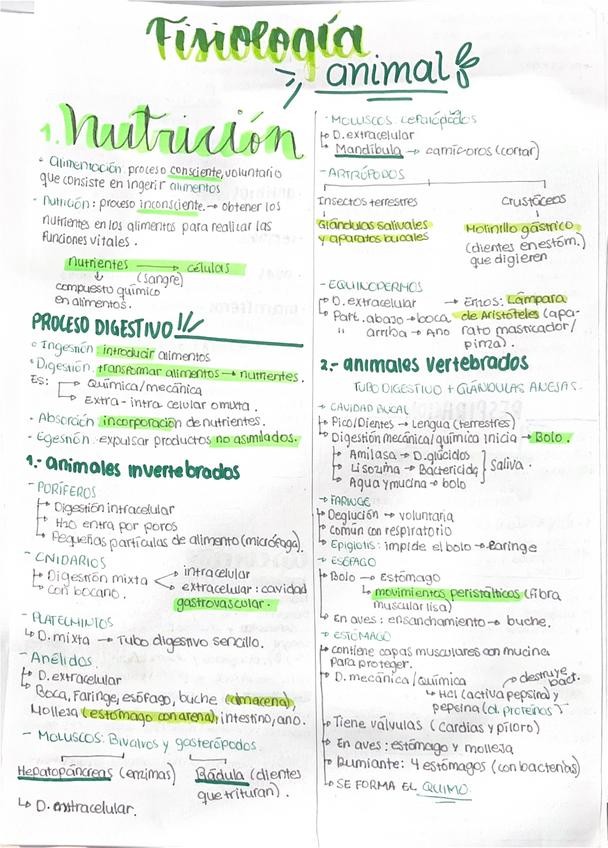 Fisiología
animal
1. Nutrición
• Alimentación: proceso consciente, voluntario
que consiste en ingerir alimentos
• Nutrición: proceso inconsciente. → obtener los
nutrientes en los alimentos para realizar las
funciones vitales.
nutrientes → células
(sangre)
compuesto químico
en alimentos.
PROCESO DIGESTIVO
• Ingestión: introducir alimentos
• Digestión: transformar alimentos → nutrientes.
Es: Química/mecánica
Extra - intra celular o mixta.
- Absorción: incorporación de nutrientes.
- Egestión: expulsar productos no asimilados.
1.- animales invertebrados
- PORÍFEROS
Digestión intracelular
H2O entra por poros
Pequeñas partículas de alimento (micrófaga).
- CNIDARIOS
Digestión mixta
intracelular
con bocano.
extracelular: cavidad
gastrovascular.
- PLATELMINTOS
D. mixta → Tubo digestivo sencillo.
- Anélidos.
D. extracelular
Boca, Faringe, esófago, buche (almacena),
Molleja (estómago con arena), intestino, ano.
- MOLUSCOS: Bivalvos y gasterópodos.
Hepatopáncreas (enzimas)
Rádula (dientes
que trituran).
D. extracelular.
- MOLUSCOS. Cefalópodos
D. extracelular
Mandíbula → carnívoros (cortar)
- ARTRÓPODOS
Insectos terrestres
Crustáceos
Glándulas salivales
y aparatos bucales
Molinillo gástrico
(dientes en estóm.)
que digieren
- EQUINODERMOS
D. extracelular
Part. abajo → boca
" arriba → Ano
→ Erizos: Lámpara
de Aristóteles (apa-
rato masticador/
pinza).
2.- animales vertebrados
TUBO DIGESTIVO + GLÁNDULAS ANEJAS.
→ CAVIDAD BUCAL
Pico/Dientes → Lengua (terrestres)
Digestión mecánica/química inicia → Bolo.
Amilasa → D. glúcidos
Lisozima → Bactericida
Agua y mucina → bolo
Saliva.
→ FARINGE
Deglución → voluntaria
Común con respiratorio
Epiglotis: impide el bolo → Laringe
- ESÓFAGO
Bolo → Estómago
movimientos peristálticos (fibra
muscular lisa)
En aves: ensanchamiento → buche.
- ESTÓMAGO
contiene capas musculares con mucina
para proteger.
D. mecánica/química
destruye
bact.
HCl (activa pepsina) y
pepsina (d. proteínas)
Tiene válvulas (cardias y píloro)
En aves: estómago y molleja
Rumiante: 4 estómagos (con bacterias)
SE FORMA EL QUIMO.